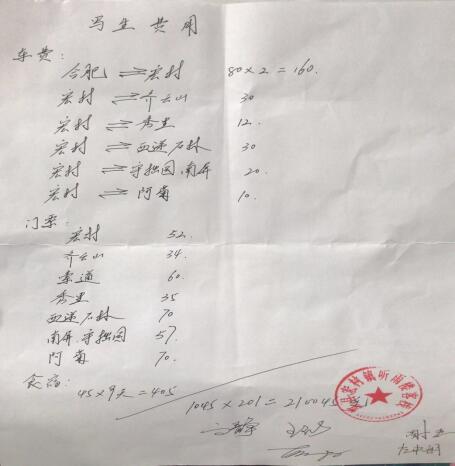 写生费用
车费:
合肥⇌宏村 80×2=160.
宏村⇌齐云山 30
宏村⇌秀里 12.
宏村⇌西递石林 30
宏村⇌守拙园.南屏 20.
宏村⇌阿菊 10.
门票:
宏村 52.
齐云山 34.
索道 60.
秀里 35
西递石林 70
南屏.守拙园 57.
阿菊 70.
食宿:
45×9天=405
1045×201=210045
宏村镇听雨楼客栈